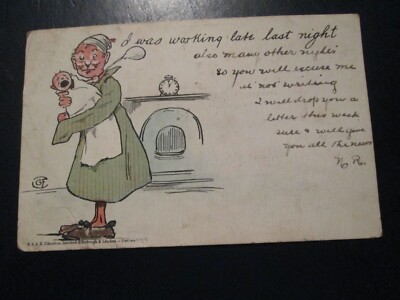 I was working late last night
also many other nights
so you will excuse me
at not writing
I will drop you a
letter this week
sure & will give
you all the news
N. R.